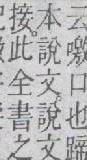 云噭口也蹄
本說文。說文
接。此全書之